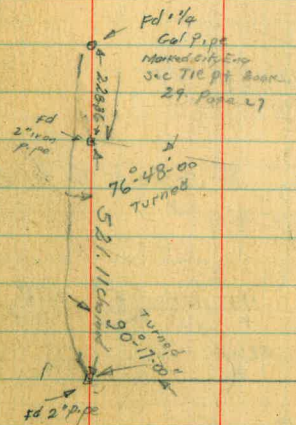 Fd 1 1/4
Gal Pipe
Marked City Eng
See Tie Pt Book
29. Page 27
228.36
Fd
2" iron
pipe
76°-48'-00
Turned
521.11 chained
Turned
90°-17'-00"
Fd 2" pipe